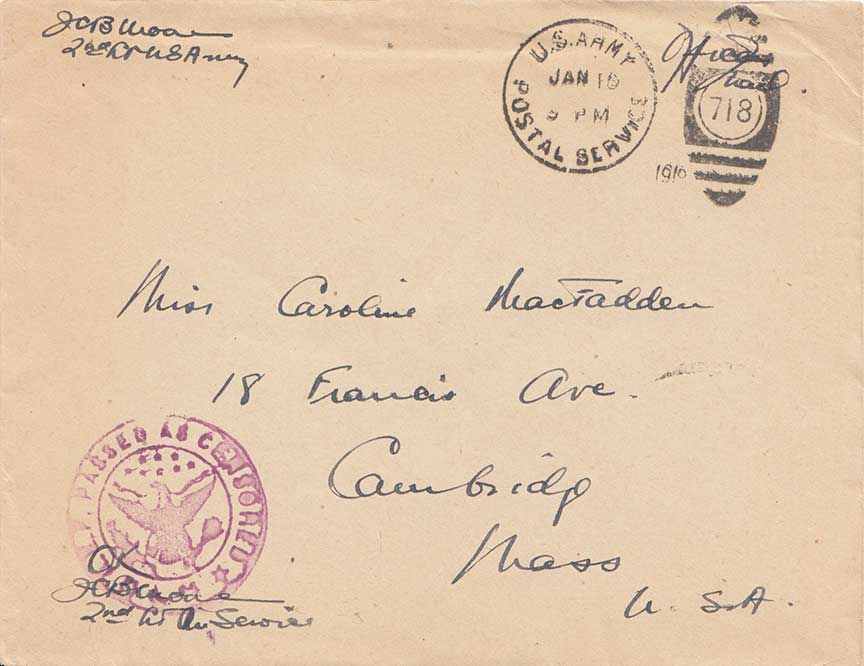 JCB Moore
2nd Lt USArmy
U.S. ARMY
POSTAL SERVICE
JAN 16
PM
718
Miss Caroline MacFadden
18 Francis Ave.
Cambridge
Mass
U.S.A.
PASSED AS CENSORED
OK
JCB Moore
2nd Lt Service